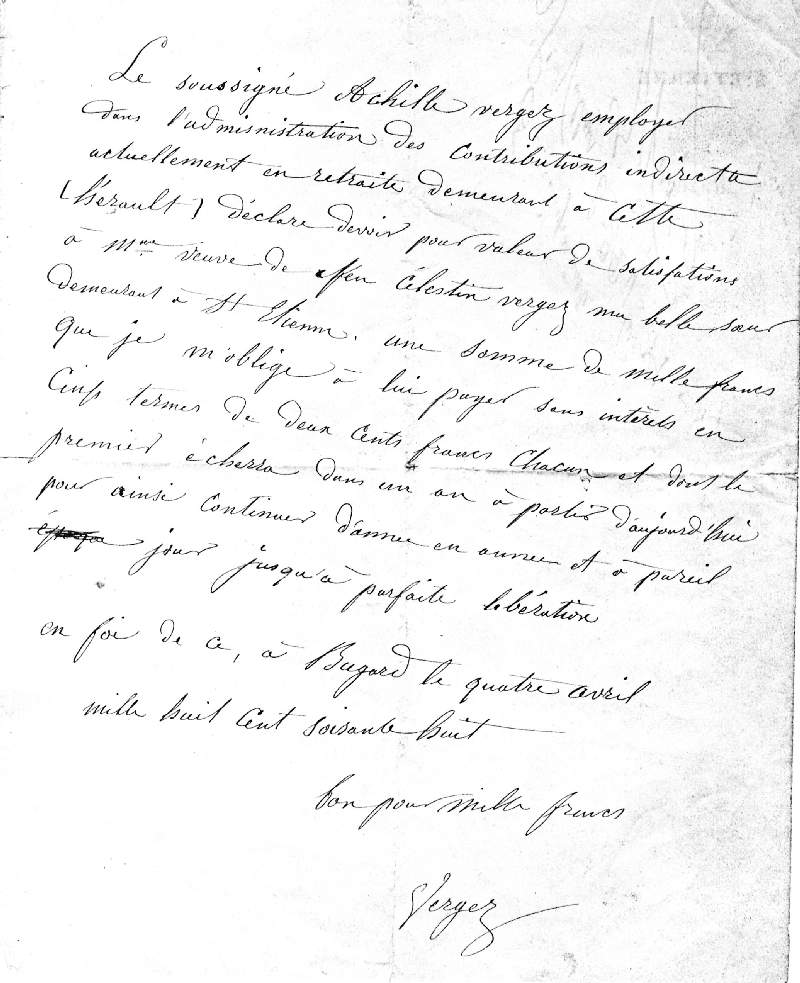 Le soussigné Achille vergez employer
dans l'admisnistration des contributions indirecta
actuellement en retraite demeurant à Cette
(hérault) déclare devoir pour valeur de satisfations
à Mme veuve de feu Célestin vergez ma belle sœur
demeurant à St Etienne. une somme de mille francs
que je m'oblige à lui payer sans intérets en
Cinq termes de deux Cents francs Chacun et dont le
premier écherra dans un an à partir d'aujourd'hui
pour ainsi Continuer d'annee en annee et à pareil
jour jusqu'à parfaite libération
en foi de ce, à Bagard le quatre avril
mille huit Cent soisante huit
bon pour mille francs
Vergez